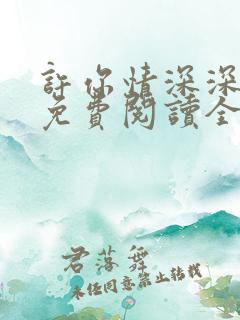 許你情深深
免費閱讀全
君落舞
未任同意禁止转载